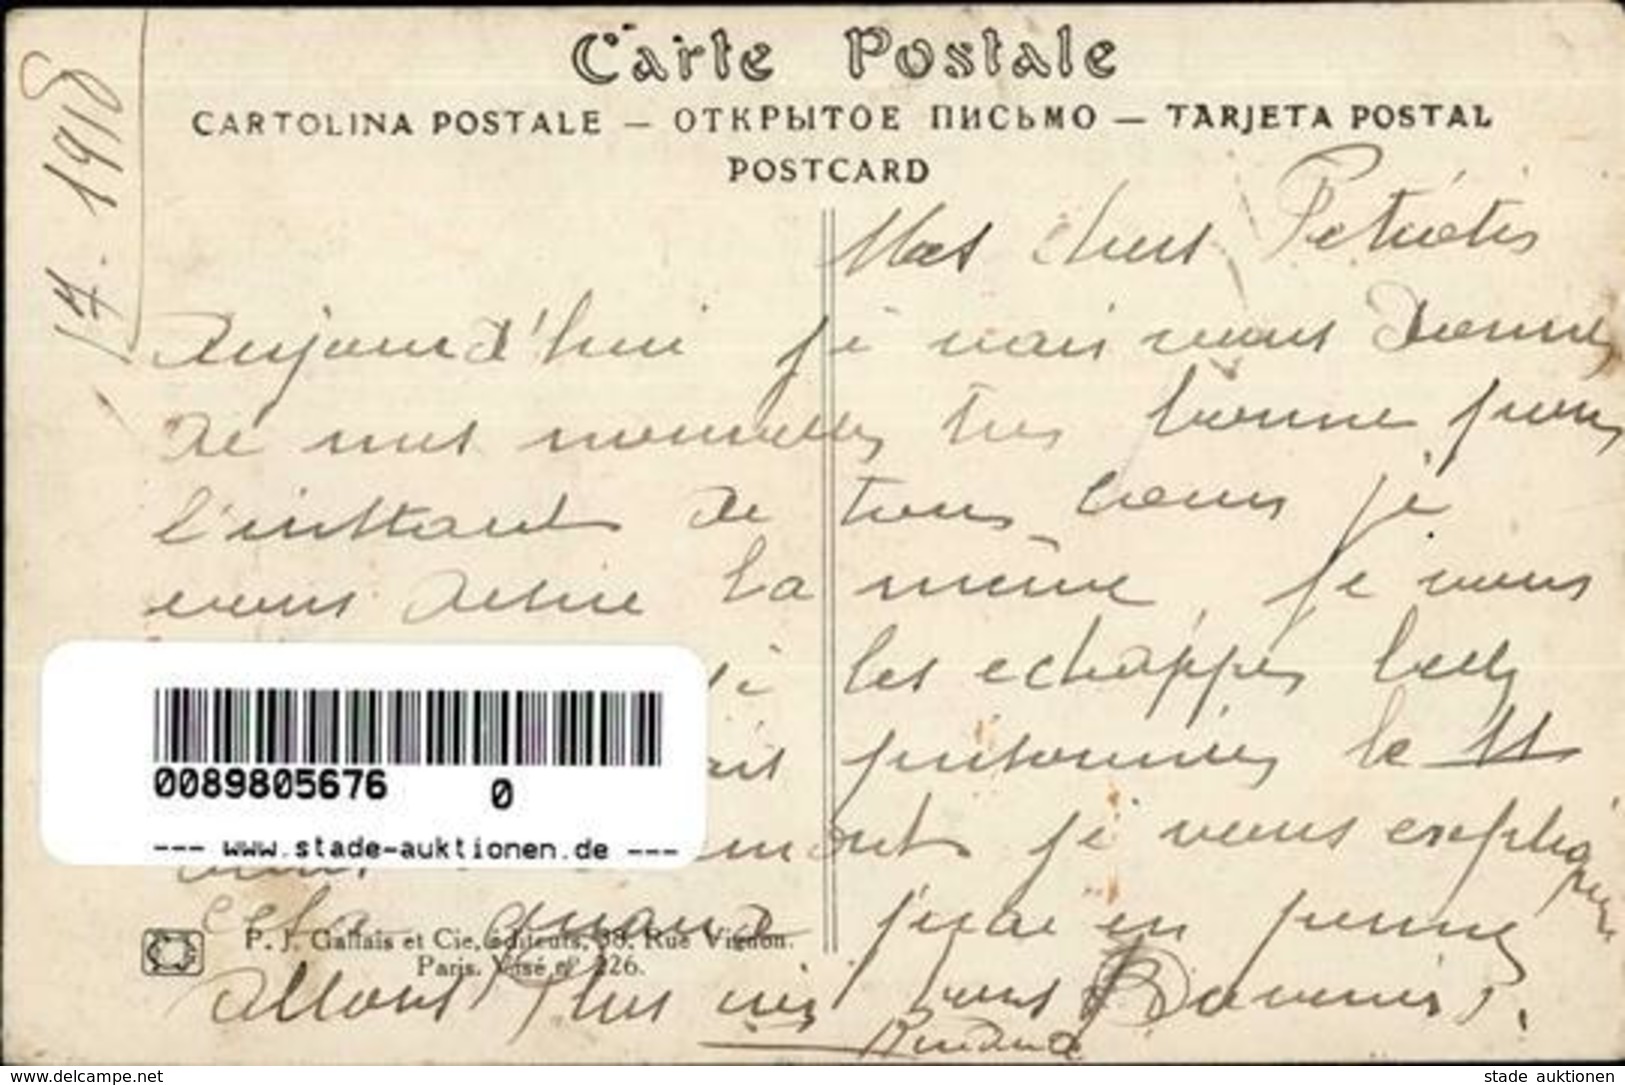 Carte Postale
CARTOLINA POSTALE — ОТКРЫТОЕ ПИСЬМО — TARJETA POSTAL
POSTCARD
17. 4. 1918
Mes chers
Aujourd'hui je vais vous donner
de mes nouvelles tres bonne pour
l'instant de tous coeur je
vous desire la même, je vous
les echappés belle
prisonnier le 11
je vous expliquer
cela quand j'irai en perme
Allons plus rien
Renaud
0089805676 0
--- www.stade-auktionen.de ---
P. J. Gallais et Cie, éditeurs, 38, Rue Vignon.
Paris. Visé nº 226.
www.delcampe.net
stade auktionen